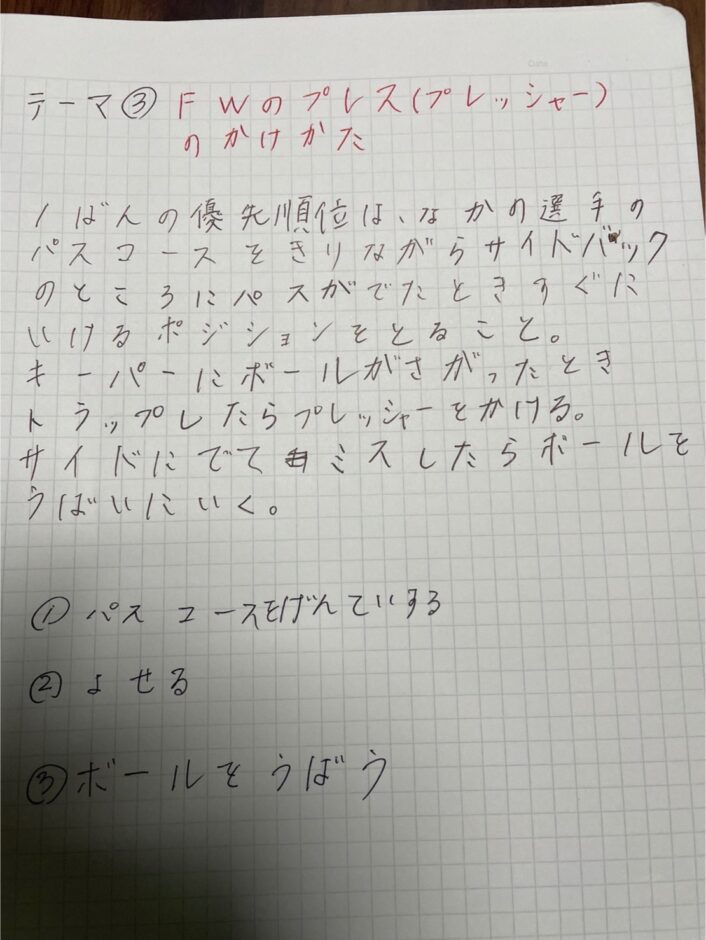 Date
テーマ③ FWのプレス(プレッシャー)
のかけかた
1ばんの優先順位は、なかの選手の
パスコースをきりながらサイドバック
のところにパスがでたときすぐに
いけるポジションをとること。
キーパーにボールがさがったとき
トラップしたらプレッシャーをかける。
サイドにでてミスしたらボールを
うばいにいく。
① パスコースをげんていする
② よせる
③ ボールをうばう